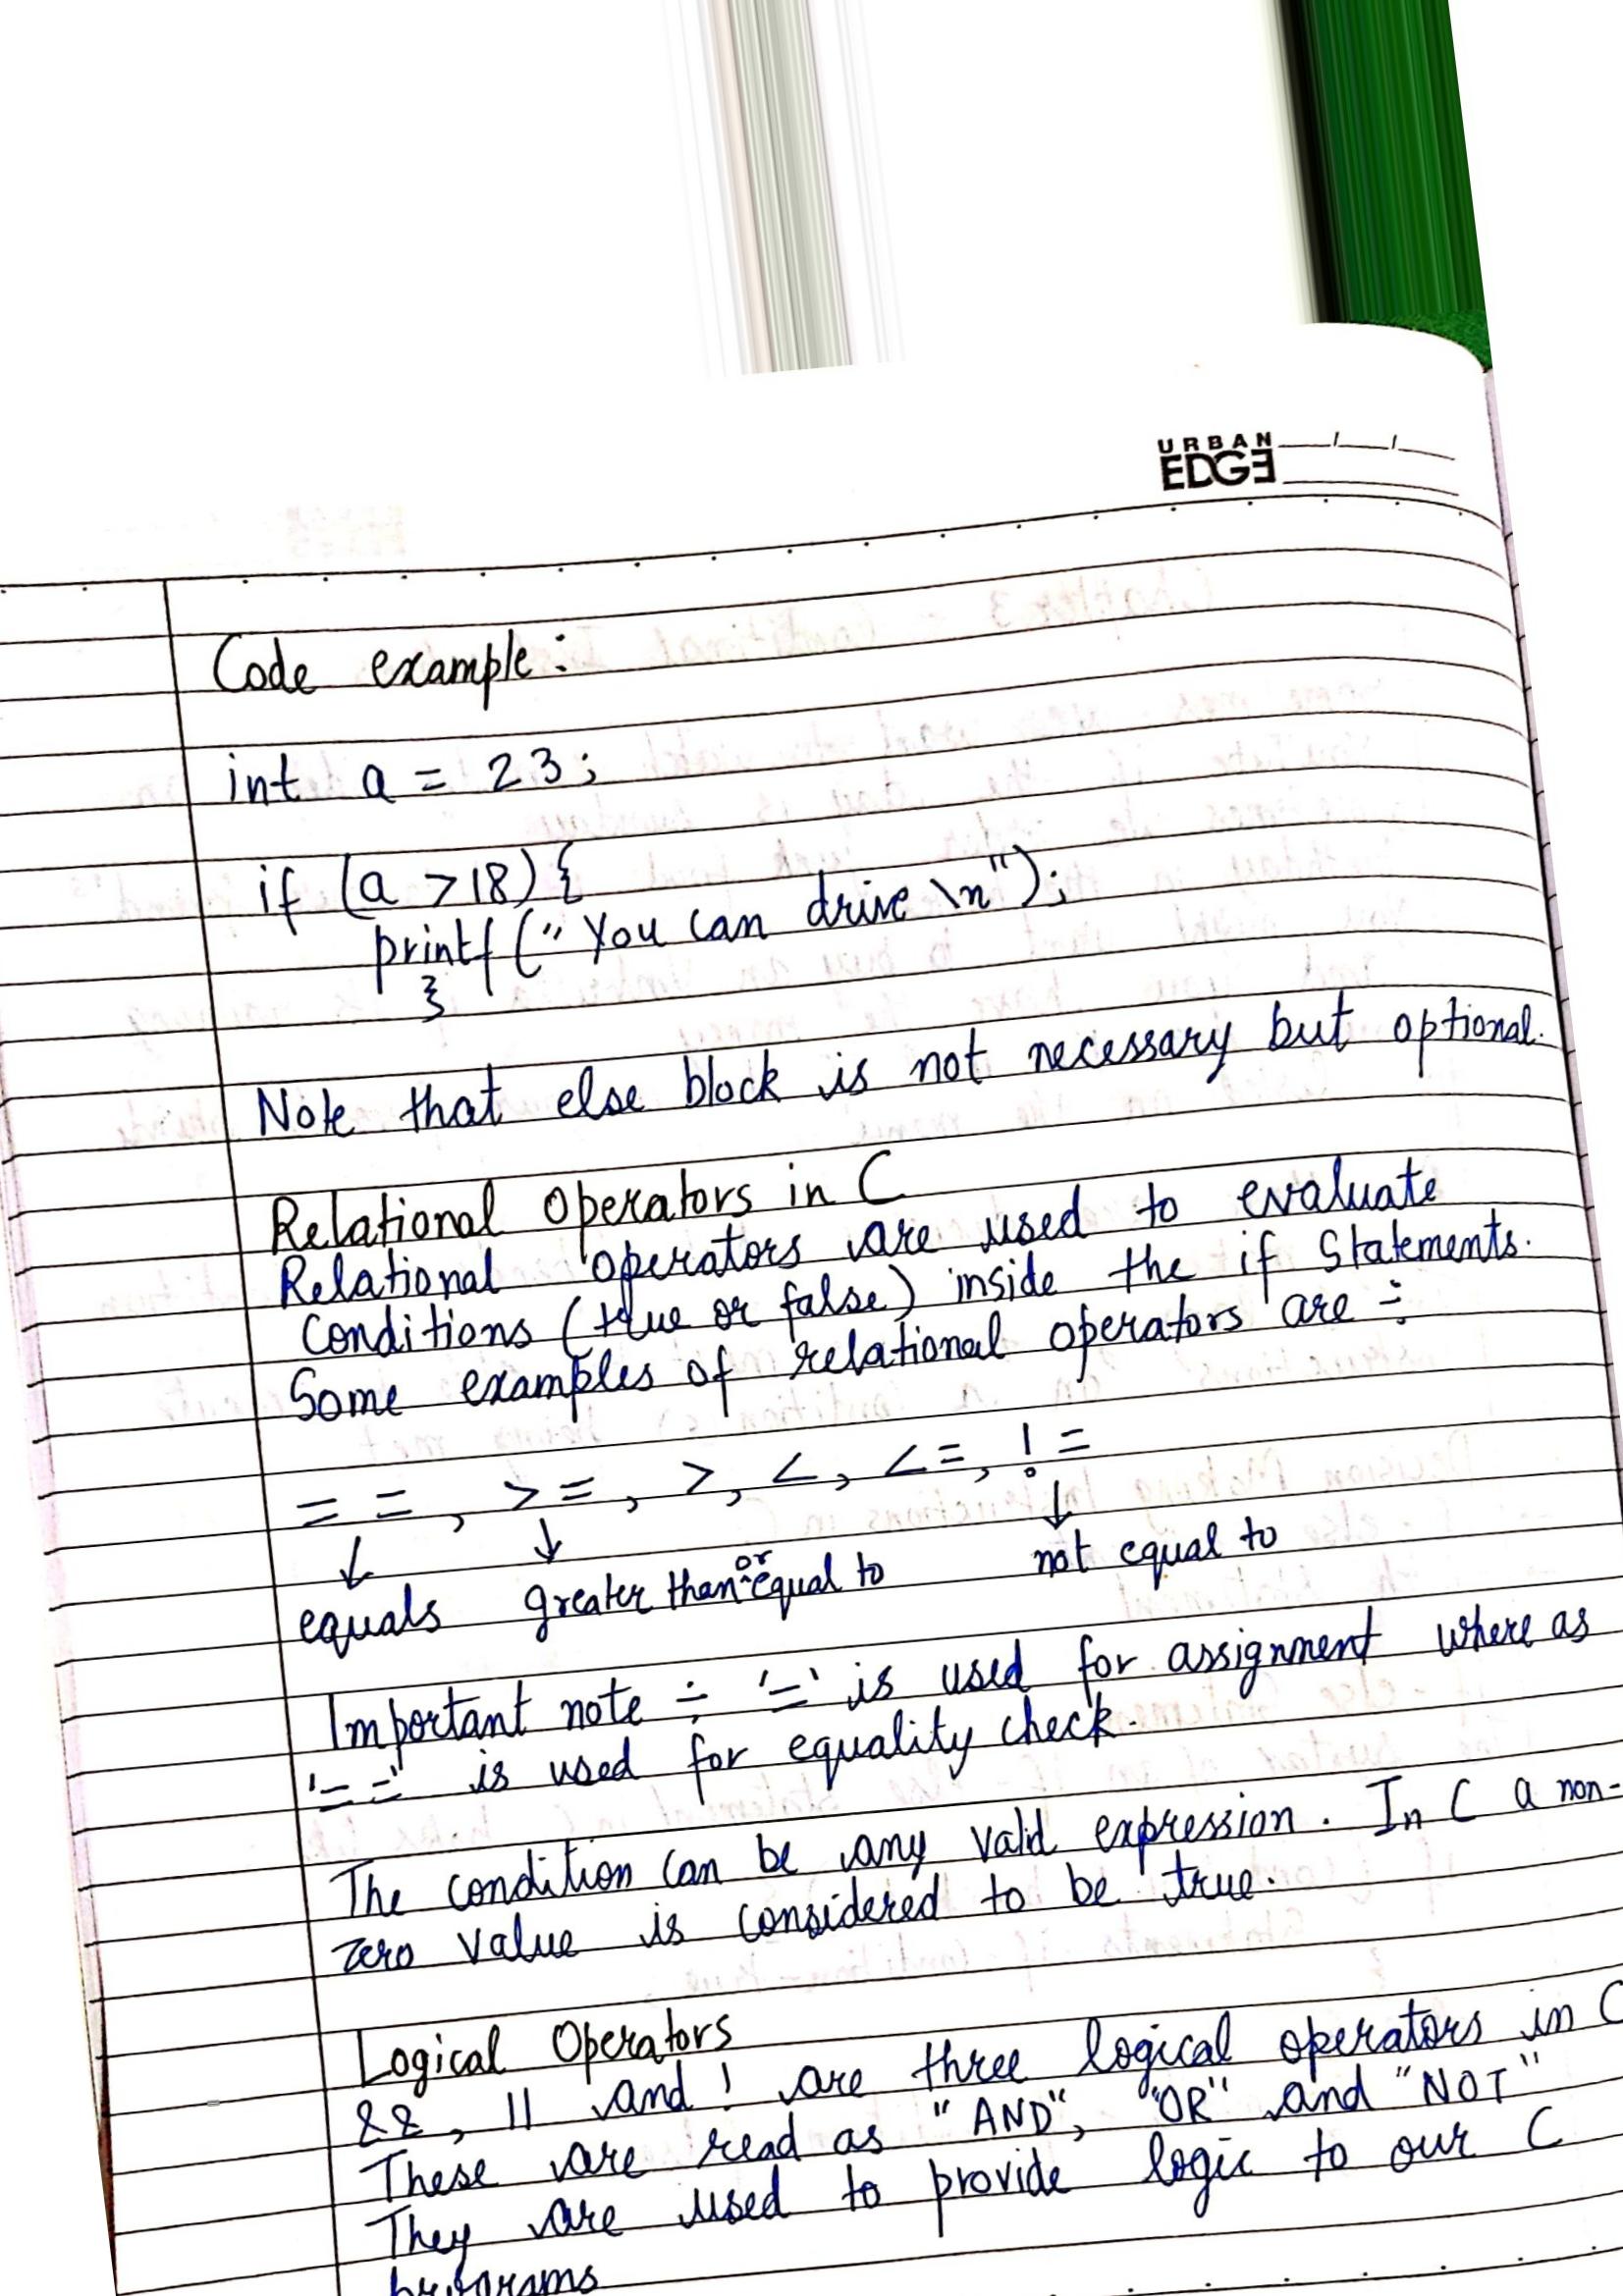 URBAN
EDGE
Code example:
int a = 23;
if (a > 18) {
printf (" You can drive \n");
}
Note that else block is not necessary but optional.
Relational operators in C
Relational operators are used to evaluate
Conditions (true or false) inside the if statements.
Some examples of relational operators are ÷
= = , > = , >, <, < =, ! =
↓ ↓ ↓
equals greater than or equal to not equal to
Important note ÷ '=' is used for assignment where as
'= =' is used for equality check.
The condition can be any valid expression. In C a non-
zero value is considered to be true.
Logical Operators
&&, || and ! are three logical operators in C
These are read as "AND", "OR" and "NOT"
They are used to provide logic to our C
programs